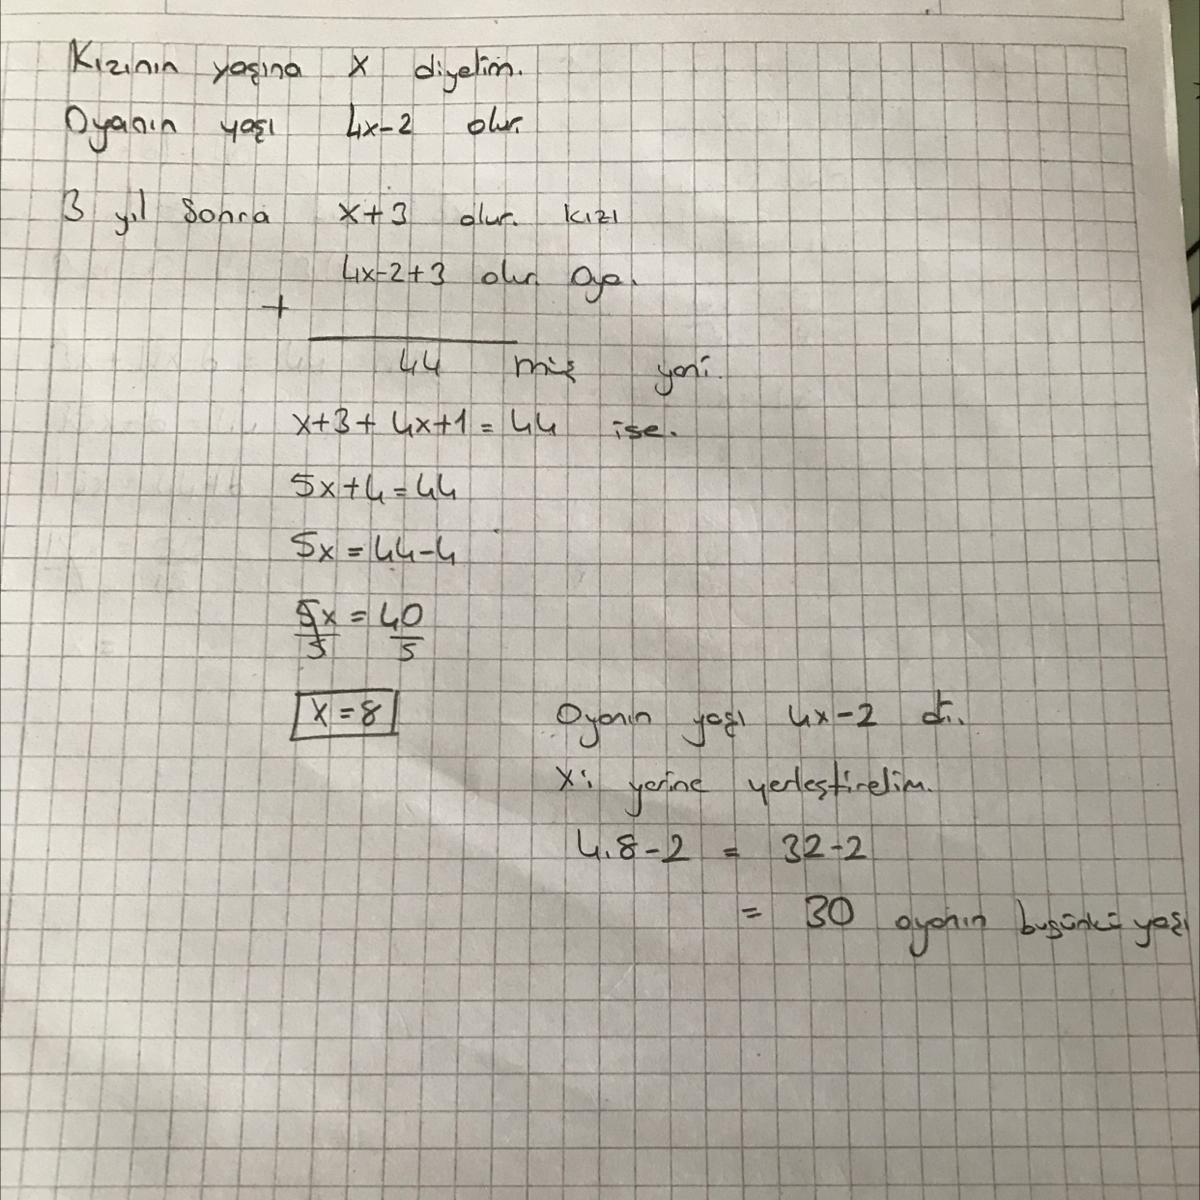 Kızının yaşına x diyelim.
Oyanın yaşı 4x-2 olur.
3 yıl sonra x+3 olur. kızı
4x-2+3 olur. Oya.
+
44 miş yani.
x+3+4x+1=44 ise.
5x+4=44
5x=44-4
5x = 40
5 5
x=8
Oyanın yaşı 4x-2 di.
x'i yerine yerleştirelim.
4.8-2 = 32-2
= 30 oyanın bugünkü yaşı